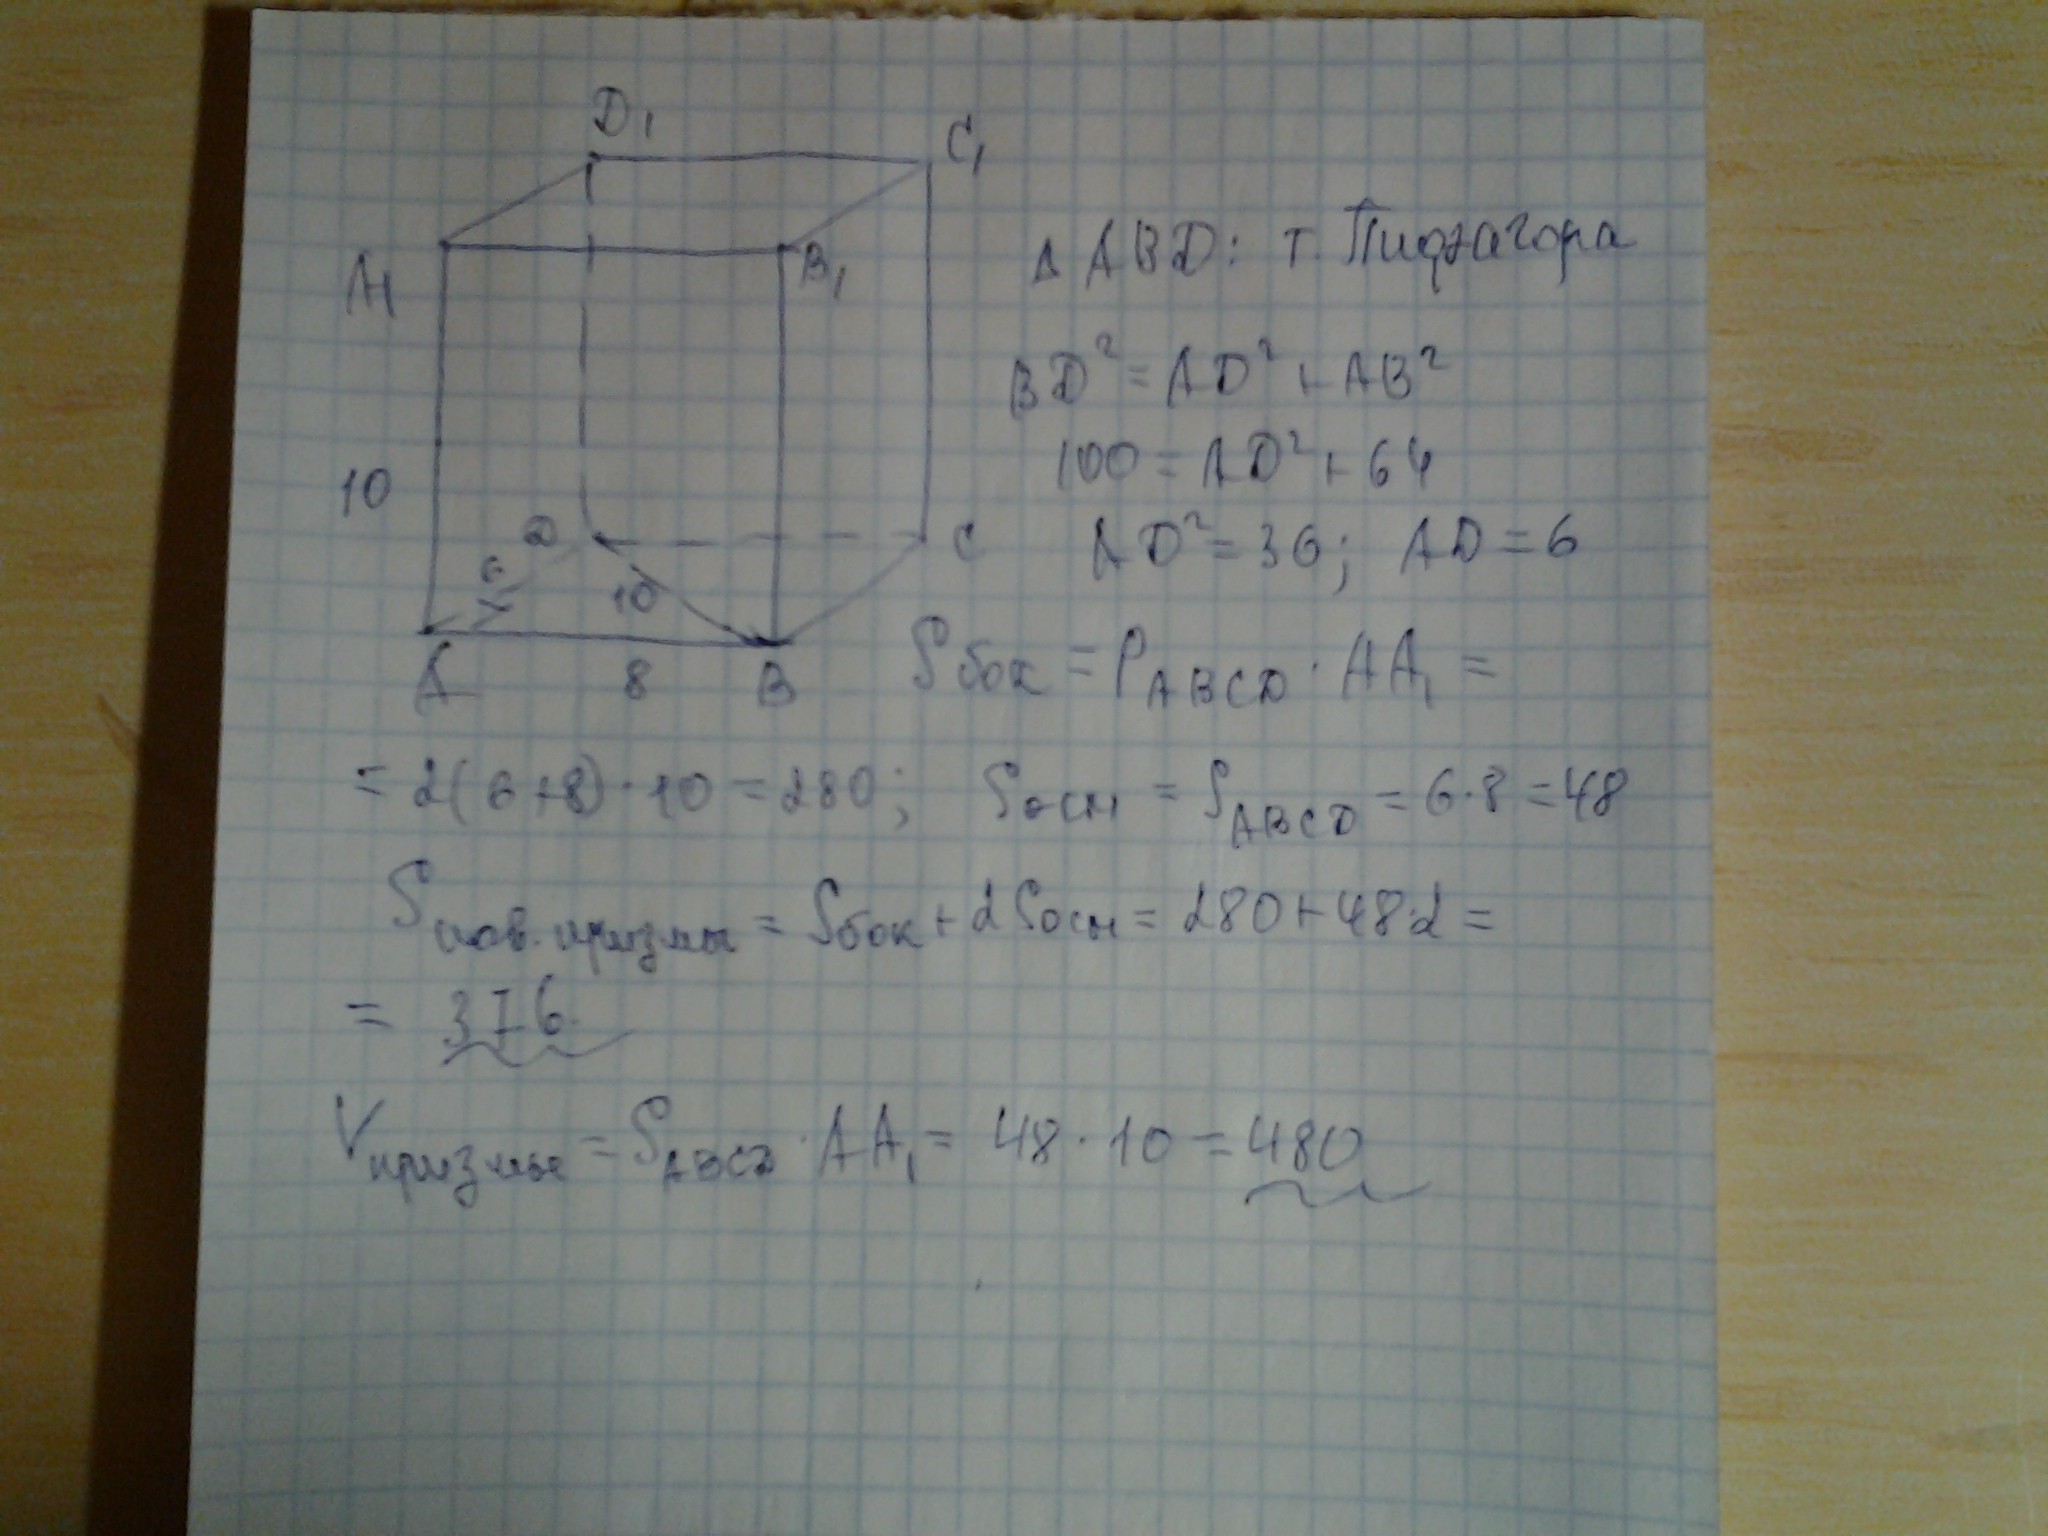 D₁
C₁
A₁
B₁
10
D
C
6
10
A
8
B
Δ ABD: т. Пифагора
BD² = AD² + AB²
100 = AD² + 64
AD² = 36; AD = 6
Sбок = P_ABCD · AA₁ =
= 2(6+8)·10 = 280; Sосн = S_ABCD = 6·8 = 48
Sпов. призмы = Sбок + 2Sосн = 280 + 48·2 =
= 376.
Vпризмы = S_ABCD · AA₁ = 48 · 10 = 480